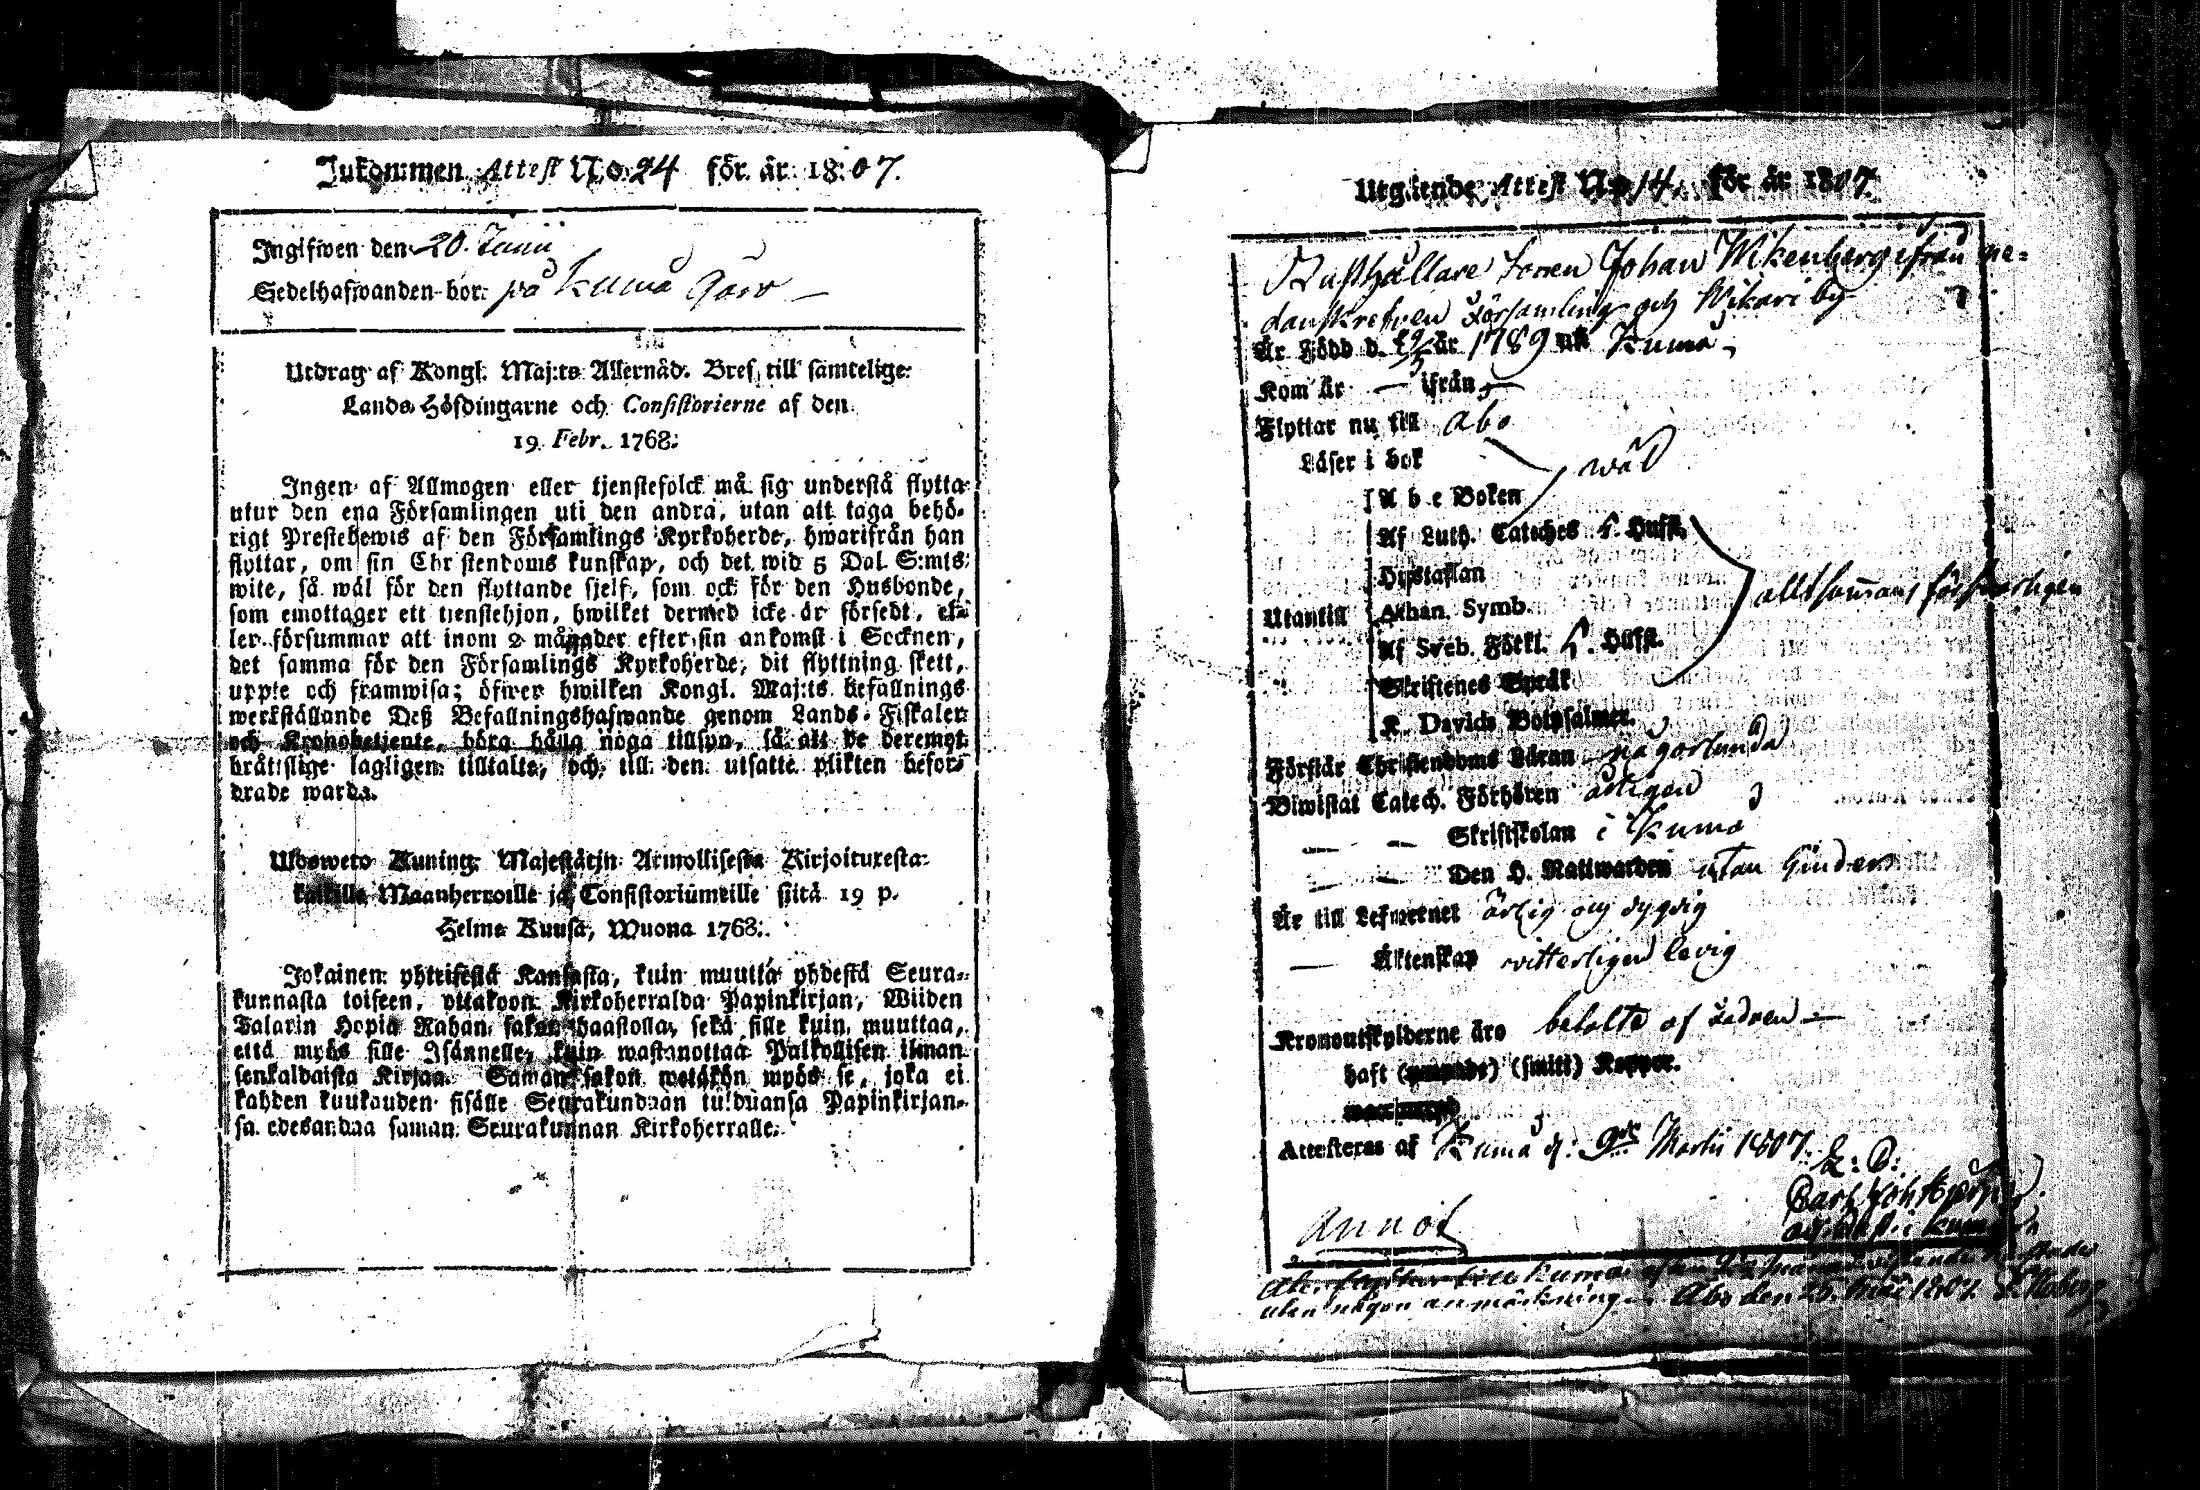 Inkommen Attest No. 24 för år 1807.
Ingifwen den 20. Junii
Sedelhafwanden bor: på Kumo gård
Utdrag af Kongl. Maj:ts Allernåd. Bref till samtelige
Lands Höfdingarne och Consistorierne af den
19 Febr. 1768.
Ingen af Allmogen eller tjenstefolck må sig understå flytta
utur den ena Församlingen uti den andra, utan att taga behö-
rigt Prestebewis af den Församlings Kyrkoherde, hwarifrån han
flyttar, om sin Christendoms kunskap, och det wid 5 Dal. S:mts
wite, så wäl för den flyttande sjelf, som ock för den Husbonde,
som emottager ett tjenstehjon, hwilket dermed icke är försedt, el-
ler försummar att inom 2 månader efter sin ankomst i Socknen,
det samma för den Församlings Kyrkoherde, dit flyttning skett,
uppte och framwisa; öfwer hwilken Kongl. Maj:ts befallnings
werkställande Deß Befallningshafwande genom Lands-Fiskaler
och Kronobetjente, böra hålla noga tillsyn, så att de deremot
bråttslige lagligen tilltalte, och till den utsatte plikten befor-
drade warda.
Ulosweto Kuning. Majestätin Armollisesta Kirjoituxesta
kaikille Maanherroille ja Consistoriumeille siitä 19 p.
Helme Kuusa, Wuona 1768.
Jokainen yhteisestä Kansasta, kuin muuttaa yhdestä Seura-
kunnasta toiseen, ottakoon Kirkoherralda Papinkirjan, Wiiden
Talarin Hopia Rahan sakon haastolla, sekä sille kuin muuttaa,
että myös sille Isännelle, kuin wastanottaa Palkollisen ilman
senkaldaista Kirjaa. Saman sakon wetäkön myös se, joka ei
kahden kuukauden sisälle Seurakundaan tulduansa Papinkirjan-
sa edesandaa saman Seurakunnan Kirkoherralle.
Utgående Attest No 14. för år 1807
Rusthållare Sonen Johan Wikenberg ifrån ne-
danskrefven Församling och Wikari by
Är Född d. år 1789 uti Kumo
Kom år — ifrån —
Flyttar nu till Åbo
Läser i bok wäl
A b c Boken
Af Luth. Cateches h. Hufst.
Hustaflan
Utantill Athan. Symb.
Af Sveb. Förkl. h. Hufst.
Skriftenes Språk
K. Davids Botpsalmer.
allsammans försvarligen
Förstår Christendoms Läran någorlunda
Biwistat Catech. Förhören årligen
— — Skriftskolan i Kumo
— — Den H. Nattwarden utan hinder
Är till Lefwernet ärlig och dygdig
— Äktenskap witterligen ledig
Kronoutskylderne äro betalte af Fadren —
haft (smitt) Koppor.
Attesteras af Kumo d: 9de Martii 1807.
Annot
utan någon anmärkning. Åbo den 25. Maii 1807.